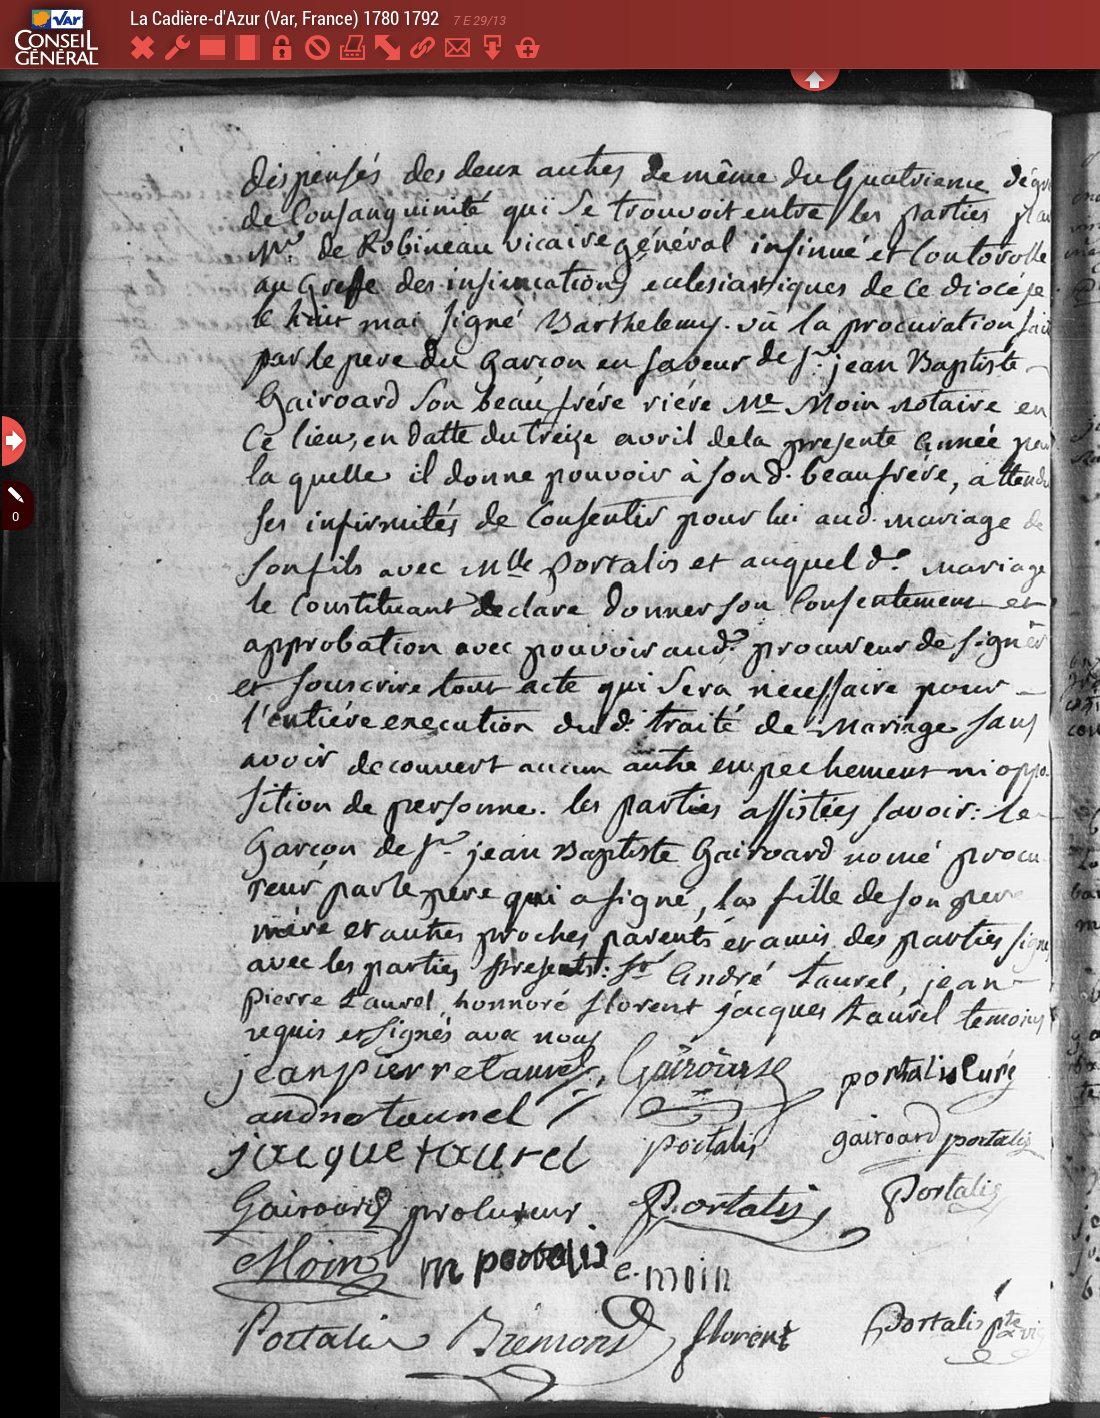 La Cadière-d'Azur (Var, France) 1780 1792 7 E 29/13
Var
CONSEIL
GÉNÉRAL
0
dispensés des deux autres de même du quatrieme degré
de Consanguinité qui se trouvoit entre les parties par
Mr. de Robineau vicaire général insinué et Controlle
au Greffe des insinuations eclesiastiques de ce diocése
le huit mai signé Barthelemy. vû la procuration fait
par le pere du Garcon en faveur de Sr. jean Baptiste
Gairoard son beau frére riére Me Moin notaire en
Ce lieu, en datte du treize avril de la presente année par
la quelle il donne pouvoir à son d. beaufrére, attendu
ses infirmités de Consentir pour lui aud. mariage de
son fils avec Mlle Portalis et auquel d. mariage
le Constituant declare donner son Consentement et
approbation avec pouvoir aud. procureur de signer
et souscrire tout acte qui sera necessaire pour
l'entiére execution du d. traité de Mariage sans
avoir decouvert aucun autre empechement ni oppo
sition de personne. les parties assistées savoir: le
Garcon de Sr. jean Baptiste Gairoard nomé procu
reur par le pere qui a signé, la fille de son pere
mére et autres proches parents et amis des parties signés
avec les parties presents: Sr André taurel, jean
pierre taurel, honnoré florent jacques taurel temoins
requis et signés avec nous
jean pierre taurel, Gairoard portalis Curé
andre taurel
jacque taurel portalis gairoard portalis
Gairoard procureur Portalis Portalis
Moin m portalis e. moin
Portalis Brémond florent Portalis ptre